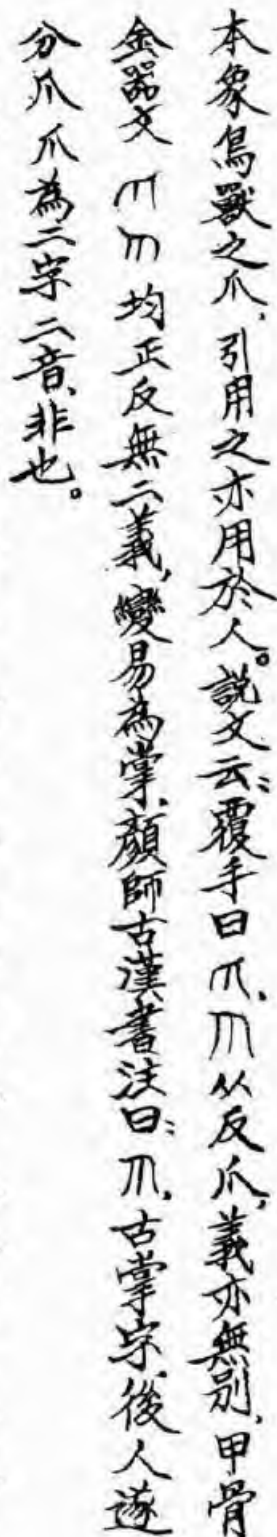 本象鳥獸之爪，引用之亦用於人。說文云：覆手曰爪，𠃨从反爪，義亦無別，甲骨
金器文爪𠃨均正反無二義，變易為掌，顏師古漢書注曰：𠃨，古掌字，後人遂
分爪𠃨為二字二音，非也。